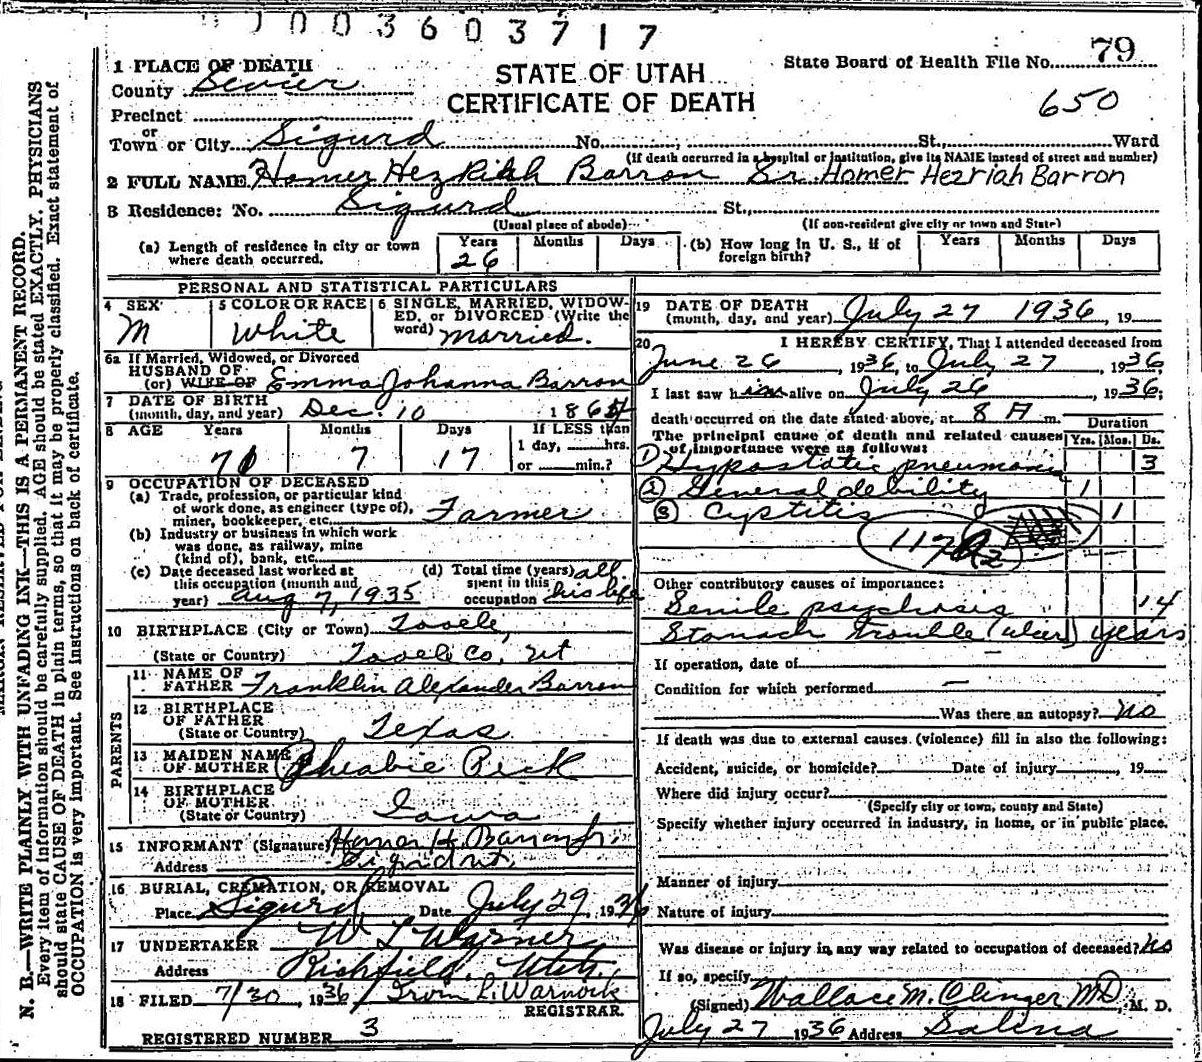 003603717
79
1 PLACE OF DEATH
STATE OF UTAH
State Board of Health File No.
County Sevier
CERTIFICATE OF DEATH
650
Precinct
or
Town or City Sigurd No. St., Ward
(If death occurred in a hospital or institution, give its NAME instead of street and number)
2 FULL NAME Homer Hezkiah Barron Sr. Homer Hezriah Barron
3 Residence: No. Sigurd St.,
(Usual place of abode) (If non-resident give city or town and State)
(a) Length of residence in city or town where death occurred. Years 26 Months Days (b) How long in U. S., if of foreign birth? Years Months Days
PERSONAL AND STATISTICAL PARTICULARS
4 SEX M
5 COLOR OR RACE White
6 SINGLE, MARRIED, WIDOWED, or DIVORCED (Write the word) married.
6a If Married, Widowed, or Divorced
HUSBAND OF
(or) WIFE OF Emma Johanna Barron
7 DATE OF BIRTH
(month, day, and year) Dec. 10 186
8 AGE Years Months Days If LESS than
7 7 17 1 day, hrs.
or min.?
9 OCCUPATION OF DECEASED
(a) Trade, profession, or particular kind
of work done, as engineer (type of),
miner, bookkeeper, etc. Farmer
(b) Industry or business in which work
was done, as railway, mine
(kind of), bank, etc.
(c) Date deceased last worked at
this occupation (month and
year) Aug 7, 1935
(d) Total time (years)
spent in this
occupation all his life
10 BIRTHPLACE (City or Town) Tooele,
(State or Country) Tooele Co. Ut
PARENTS
11 NAME OF
FATHER Franklin Alexander Barron
12 BIRTHPLACE
OF FATHER
(State or Country) Texas
13 MAIDEN NAME
OF MOTHER Pheabie Peck
14 BIRTHPLACE
OF MOTHER
(State or Country) Iowa
15 INFORMANT (Signature) Homer H. Barron Jr.
Address Sigurd Ut.
16 BURIAL, CREMATION, OR REMOVAL
Place Sigurd Date July 29, 1936
17 UNDERTAKER W L Warner
Address Richfield, Utah.
18 FILED 7/30, 1936 Irvin L. Warnock
REGISTRAR.
REGISTERED NUMBER 3
19 DATE OF DEATH
(month, day, and year) July 27 1936, 19
20 I HEREBY CERTIFY, That I attended deceased from
June 26, 1936, to July 27, 1936
I last saw him alive on July 26, 1936;
death occurred on the date stated above, at 8 A m.
The principal cause of death and related causes
of importance were as follows:
Duration
Yrs. Mos. Ds.
1) Hypostatic pneumonia 3
2) General debility 1
3) Cystitis 1
117
Other contributory causes of importance:
Senile psychosis 14
Stomach trouble (ulcer) years
If operation, date of
Condition for which performed —
Was there an autopsy? No
If death was due to external causes (violence) fill in also the following:
Accident, suicide, or homicide? Date of injury , 19
Where did injury occur?
(Specify city or town, county and State)
Specify whether injury occurred in industry, in home, or in public place.
Manner of injury
Nature of injury
Was disease or injury in any way related to occupation of deceased? No
If so, specify
(Signed) Wallace M. Clinger MD, M. D.
July 27 1936 Address Salina
N. B.—WRITE PLAINLY WITH UNFADING INK—THIS IS A PERMANENT RECORD.
Every item of information should be carefully supplied. AGE should be stated EXACTLY. PHYSICIANS
should state CAUSE OF DEATH in plain terms, so that it may be properly classified. Exact statement of
OCCUPATION is very important. See instructions on back of certificate.